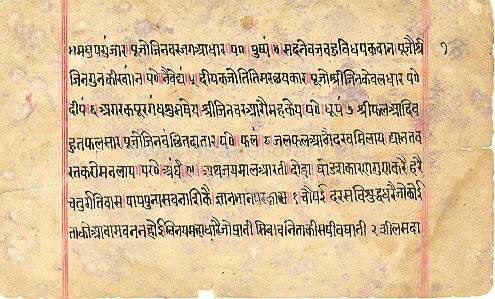 धमधुपगुंजार पूजोजिनवरजगआधार पर्णे पुष्पं ४ सदनेवजबहुविधपकवान पूजौश्री १
जिनगुनकीखांन पर्णे नैवेद्यं ५ दीपकजोतितिमरछयकार पूजोश्रीजिनकेवलधार पर्णे
दीप ६ अगरकपूरगंधशुभषेय श्रीजिनवरआगैमहकेय पर्णे धूप ७ श्रीफलआदिब
हुतफलसार पूजोजिनवंछितदातार पर्णे फलं ८ जलफलआठोदरवमिलाय द्यानतव
रतकरौमनलाय परणे अर्घं ९ अथजयमालआरती दोहा षोडशकारणगुणकरै हरै
चतुर्गतिवास पापपुन्यसबनाशिकै ज्ञानभानपरकास १ चौपई दरसविशुद्धधरैजोकोई
ताकोआवागवननहोई विनयमहाधारैजोप्रानी सिववनिताकीसषीवषानी २ शीलसदा